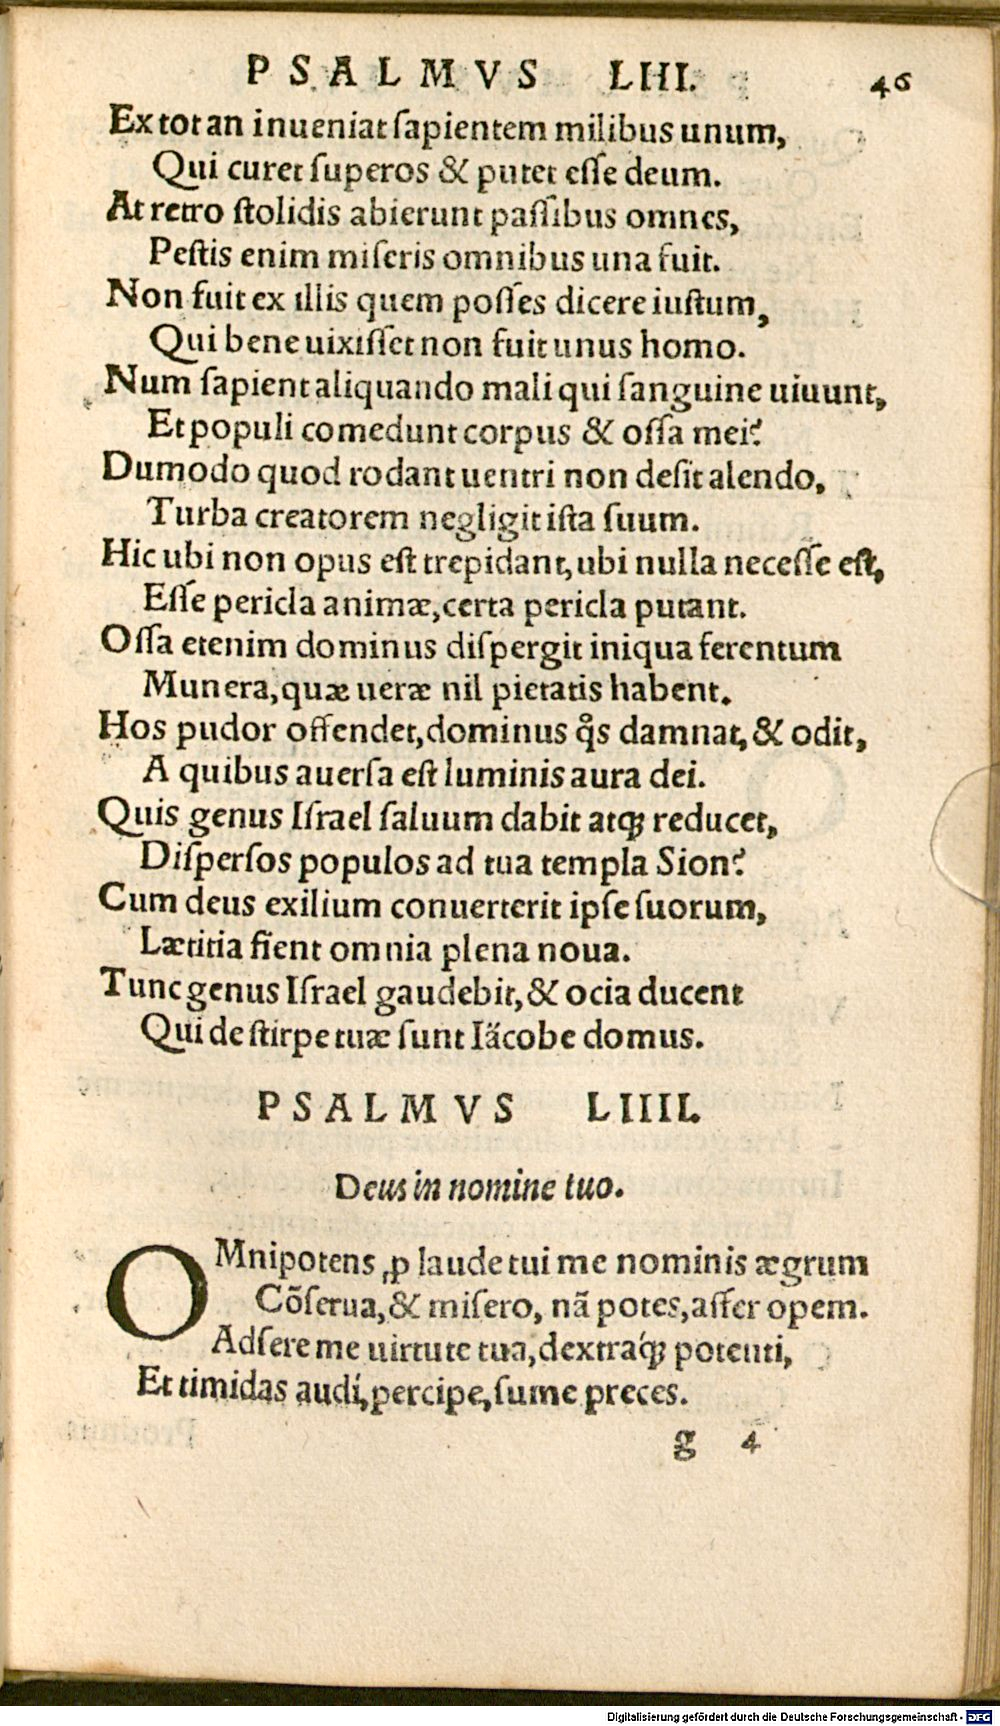 PSALMVS LIII. 46
Ex tot an inueniat ſapientem milibus unum,
Qui curet ſuperos & putet eſſe deum.
At retro ſtolidis abierunt paſſibus omnes,
Peſtis enim miſeris omnibus una fuit.
Non fuit ex illis quem poſſes dicere iuſtum,
Qui bene uixiſſet non fuit unus homo.
Num ſapient aliquando mali qui ſanguine uiuunt,
Et populi comedunt corpus & oſſa mei?
Dumodo quod rodant uentri non deſit alendo,
Turba creatorem negligit iſta ſuum.
Hic ubi non opus eſt trepidant, ubi nulla neceſſe eſt,
Eſſe pericla animæ, certa pericla putant.
Oſſa etenim dominus diſpergit iniqua ferentum
Munera, quæ ueræ nil pietatis habent.
Hos pudor offendet, dominus qͦs damnat, & odit,
A quibus auerſa eſt luminis aura dei.
Quis genus Iſrael ſaluum dabit atqꝫ reducet,
Diſperſos populos ad tua templa Sion?
Cum deus exilium conuerterit ipſe ſuorum,
Lætitia fient omnia plena noua.
Tunc genus Iſrael gaudebit, & ocia ducent
Qui de ſtirpe tuæ ſunt Iäcobe domus.
PSALMVS LIIII.
Deus in nomine tuo.
OMnipotens ꝓ laude tui me nominis ægrum
Cõſerua, & miſero, nã potes, affer opem.
Adſere me uirtute tua, dextraq́ꝫ potenti,
Et timidas audi, percipe, ſume preces.
g 4
Digitalisierung gefördert durch die Deutsche Forschungsgemeinschaft - DFG